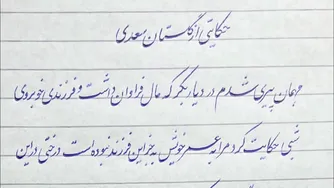 حکایتی از گلستان سعدی
مهمان پیری شدم در دیاربکر که مال فراوان داشت و فرزندی خوبروی
شبی حکایت کرد مرا به عمر خویش بجز این فرزند نبوده است درختی در این